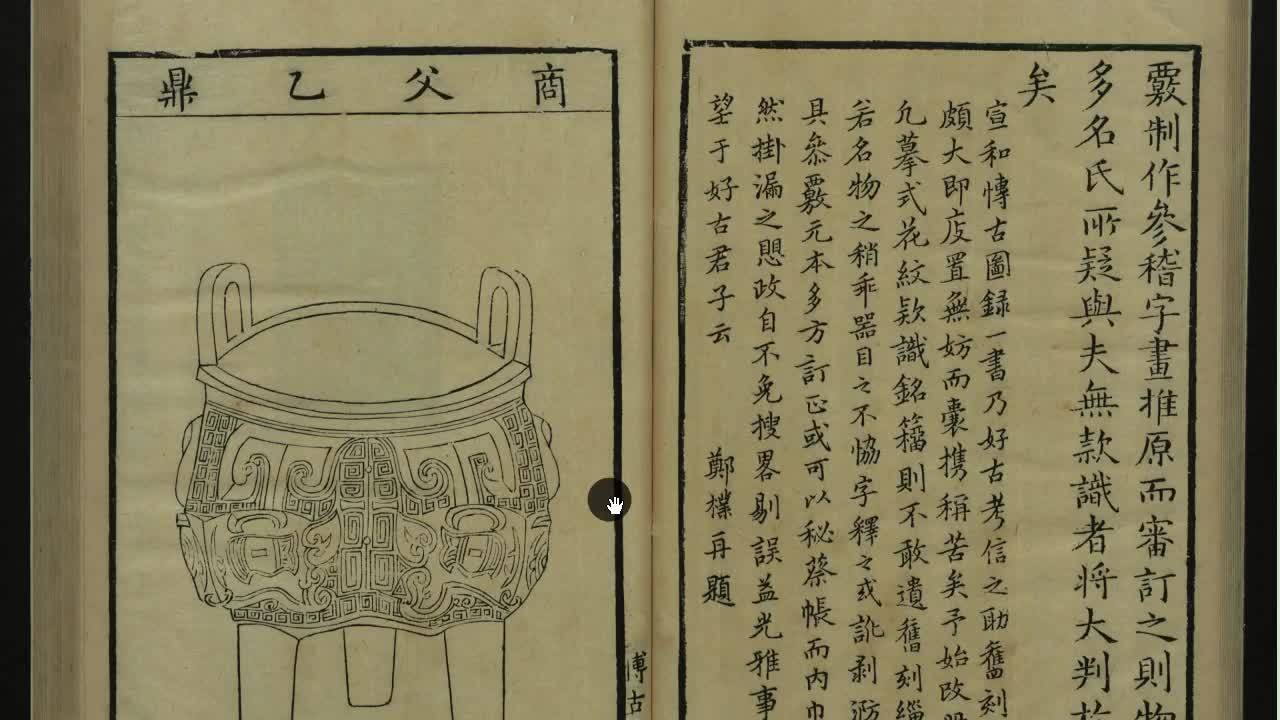 覈制作參稽字畫推原而審訂之則物
多名氏所疑與夫無款識者将大判於
矣
宣和愽古圖録一書乃好古考信之助舊刻
頗大即庋置無妨而囊携稱苦矣予始改
凢摹式花紋欵識銘籀則不敢遺舊刻緇
若名物之稍乖器目之不恊字釋之或訛剥
具叅覈元本多方訂正或可以秘蔡帳而内巾
然掛漏之愳政自不免搜畧剔誤益光雅事
望于好古君子云 鄭樸再題
商父乙鼎
博古